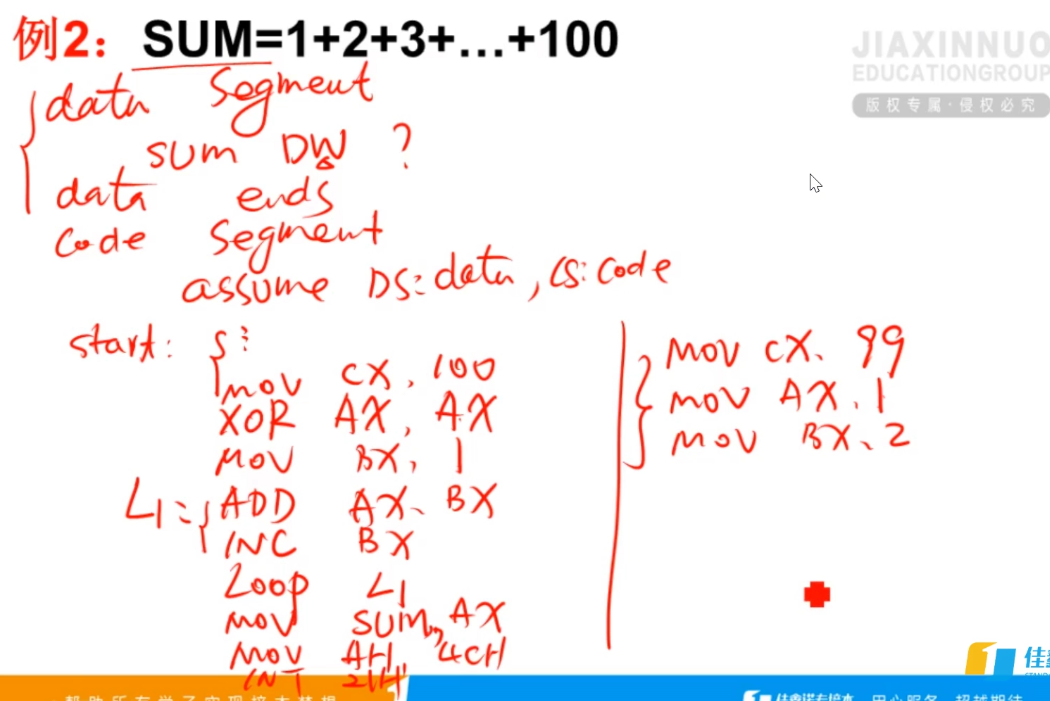 例2：SUM=1+2+3+…+100
JIAXINNUO
EDUCATIONGROUP
版权专属·侵权必究
data Segment
SUM DW ?
data ends
Code Segment
assume DS:data, CS:Code
start:
MOV CX, 100
XOR AX, AX
MOV BX, 1
L1: ADD AX, BX
INC BX
Loop L1
MOV SUM, AX
MOV AH, 4CH
INT 21H
MOV CX, 99
MOV AX, 1
MOV BX, 2
佳